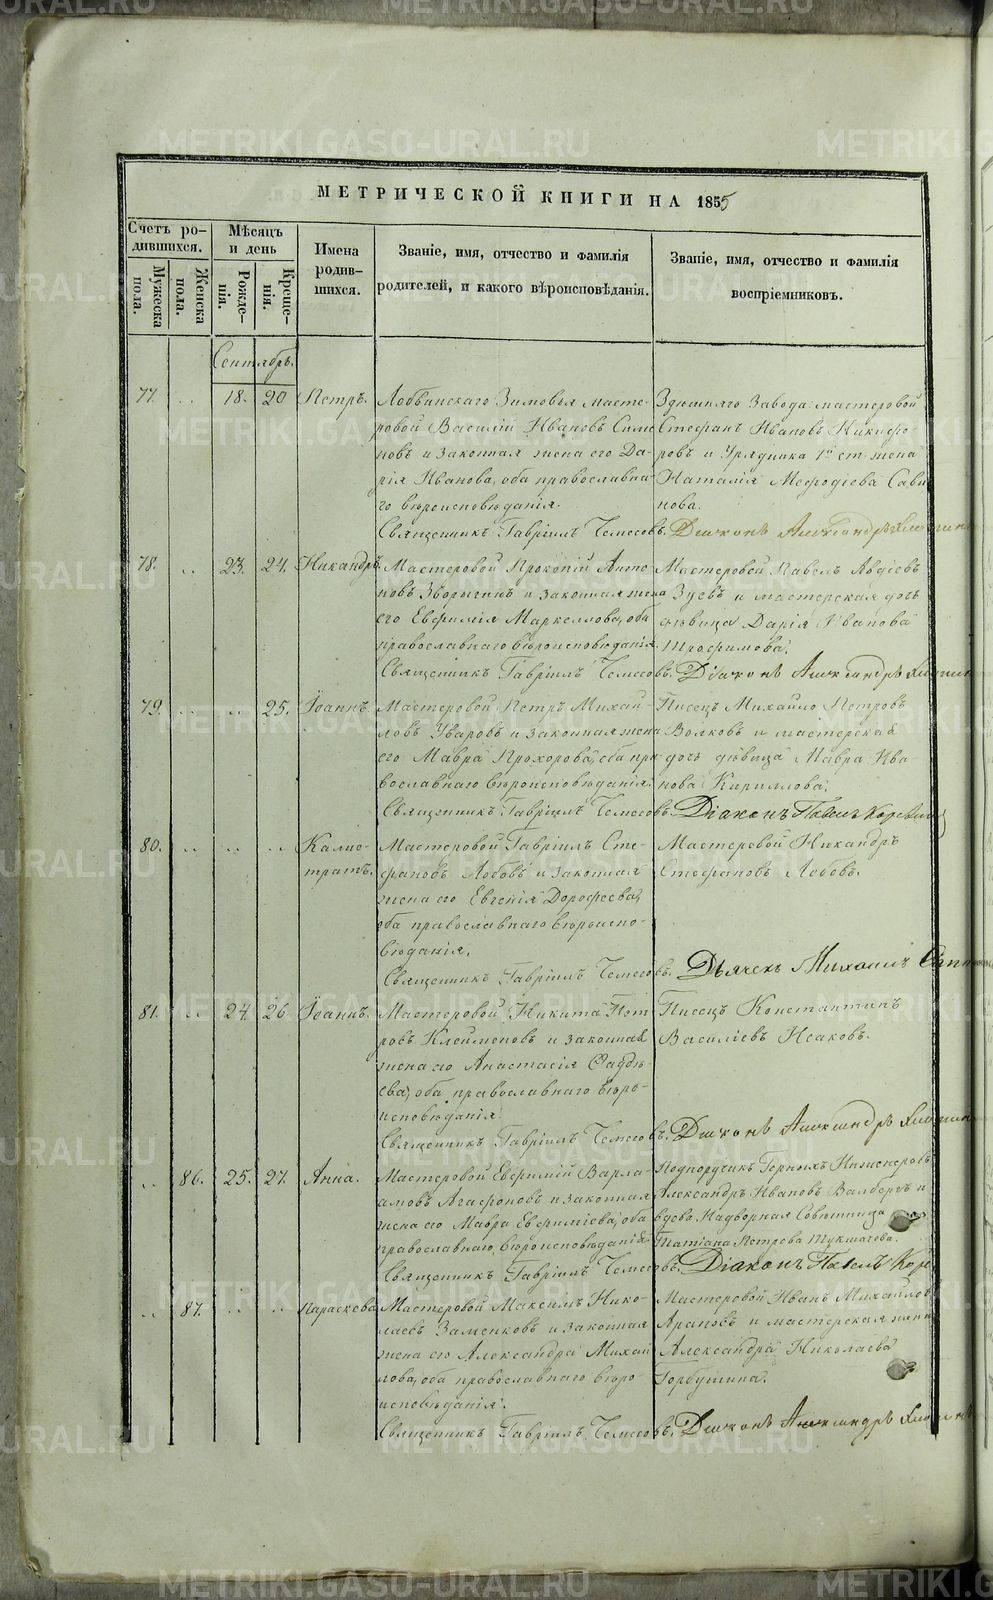 МЕТРИЧЕСКОЙ КНИГИ НА 1855
Счетъ ро-
дившихся.
Мѣсяцъ
и день
Имена
родив-
шихся.
Званіе, имя, отчество и фамилія
родителей, и какого вѣроисповѣданія.
Званіе, имя, отчество и фамилія
воспріемниковъ.
Мужеска
пола.
Женска
пола.
Рожде-
нія.
Креще-
нія.
Сентябрь.
77. .. 18. 20 Петръ.
Лобвинскаго Зимовья масте-
ровой Василій Ивановъ Симо
новъ и законная жена его Да-
рія Иванова, оба православна-
го вѣроисповѣданія.
Священникъ Гавріилъ
Здѣшняго Завода мастеровой
Стефанъ Ивановъ Никифо-
ровъ и Урядника 1й ст. жена
Наталія Меѳодіева Сави
нова.
Діаконъ Александръ
78. .. 23. 24. Никандръ.
Мастеровой Прокопій Анто-
новъ Зворыгинъ и законная жена
его Евфимія Маркеллова, оба
православнаго вѣроисповѣданія.
Священникъ Гавріилъ
Мастеровой Павелъ Авдіевъ
Зуевъ и мастерская дочь
дѣвица Дарія Иванова
Трофимова.
Діаконъ Александръ
79. .. .. 25. Іоаннъ.
Мастеровой Петръ Михай-
ловъ Уваровъ и законная жена
его Мавра Прохорова, оба пра-
вославнаго вѣроисповѣданія.
Священникъ Гавріилъ
Писецъ Михайло Петровъ
Волковъ и мастерская
дочь дѣвица Мавра Ива-
нова Кириллова.
Діаконъ Павелъ
80. .. .. .. Калис-
тратъ.
Мастеровой Гавріилъ Сте-
фановъ Лобовъ и законная
жена его Евгенія Дорофеева,
оба православнаго вѣроиспо-
вѣданія.
Священникъ Гавріилъ
Мастеровой Никандръ
Стефановъ Лобовъ.
Дьячекъ Михаилъ
81. .. 24. 26. Іоаннъ.
Мастеровой Никита Пет
ровъ Клейменовъ и законная
жена его Анастасія Фадѣ
ева, оба православнаго вѣро-
исповѣданія.
Священникъ Гавріилъ
Писецъ Константинъ
Василіевъ Исаковъ.
Діаконъ Александръ
.. 86. 25. 27. Анна.
Мастеровой Евфимій Варла
амовъ Агафоновъ и законная
жена его Мавра Евфиміева, оба
православнаго вѣроисповѣданія
Священникъ Гавріилъ
Подпоручикъ Горныхъ Инженеровъ
Александръ Ивановъ Валбергъ и
вдова Надворная Совѣтница
Татіана Петрова
Діаконъ Павелъ
.. 87. .. .. Параскова
Мастеровой Максимъ Нико-
лаевъ Заменковъ и законная
жена его Александра Михай
лова, оба православнаго вѣро-
исповѣданія.
Священникъ Гавріилъ
Мастеровой Иванъ Михайловъ
Араповъ и мастерская жена
Александра Николаева
Горбунина.
Діаконъ Александръ
METRIKI.GASO-URAL.RU